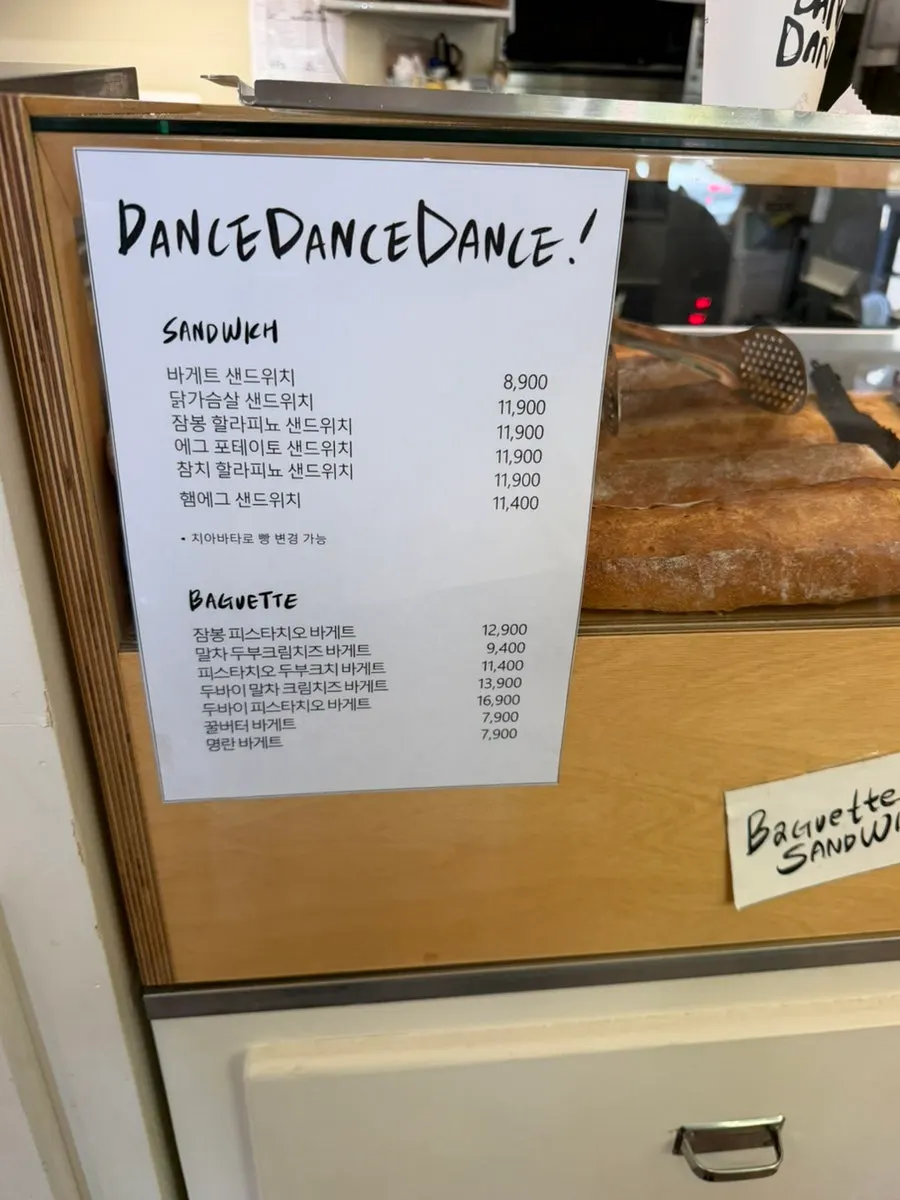 DANCE DANCE DANCE!
SANDWICH
바게트 샌드위치 8,900
닭가슴살 샌드위치 11,900
잠봉 할라피뇨 샌드위치 11,900
에그 포테이토 샌드위치 11,900
참치 할라피뇨 샌드위치 11,900
햄에그 샌드위치 11,400
• 치아바타로 빵 변경 가능
BAGUETTE
잠봉 피스타치오 바게트 12,900
말차 두부크림치즈 바게트 9,400
피스타치오 두부크치 바게트 11,400
두바이 말차 크림치즈 바게트 13,900
두바이 피스타치오 바게트 16,900
꿀버터 바게트 7,900
명란 바게트 7,900
Baguette